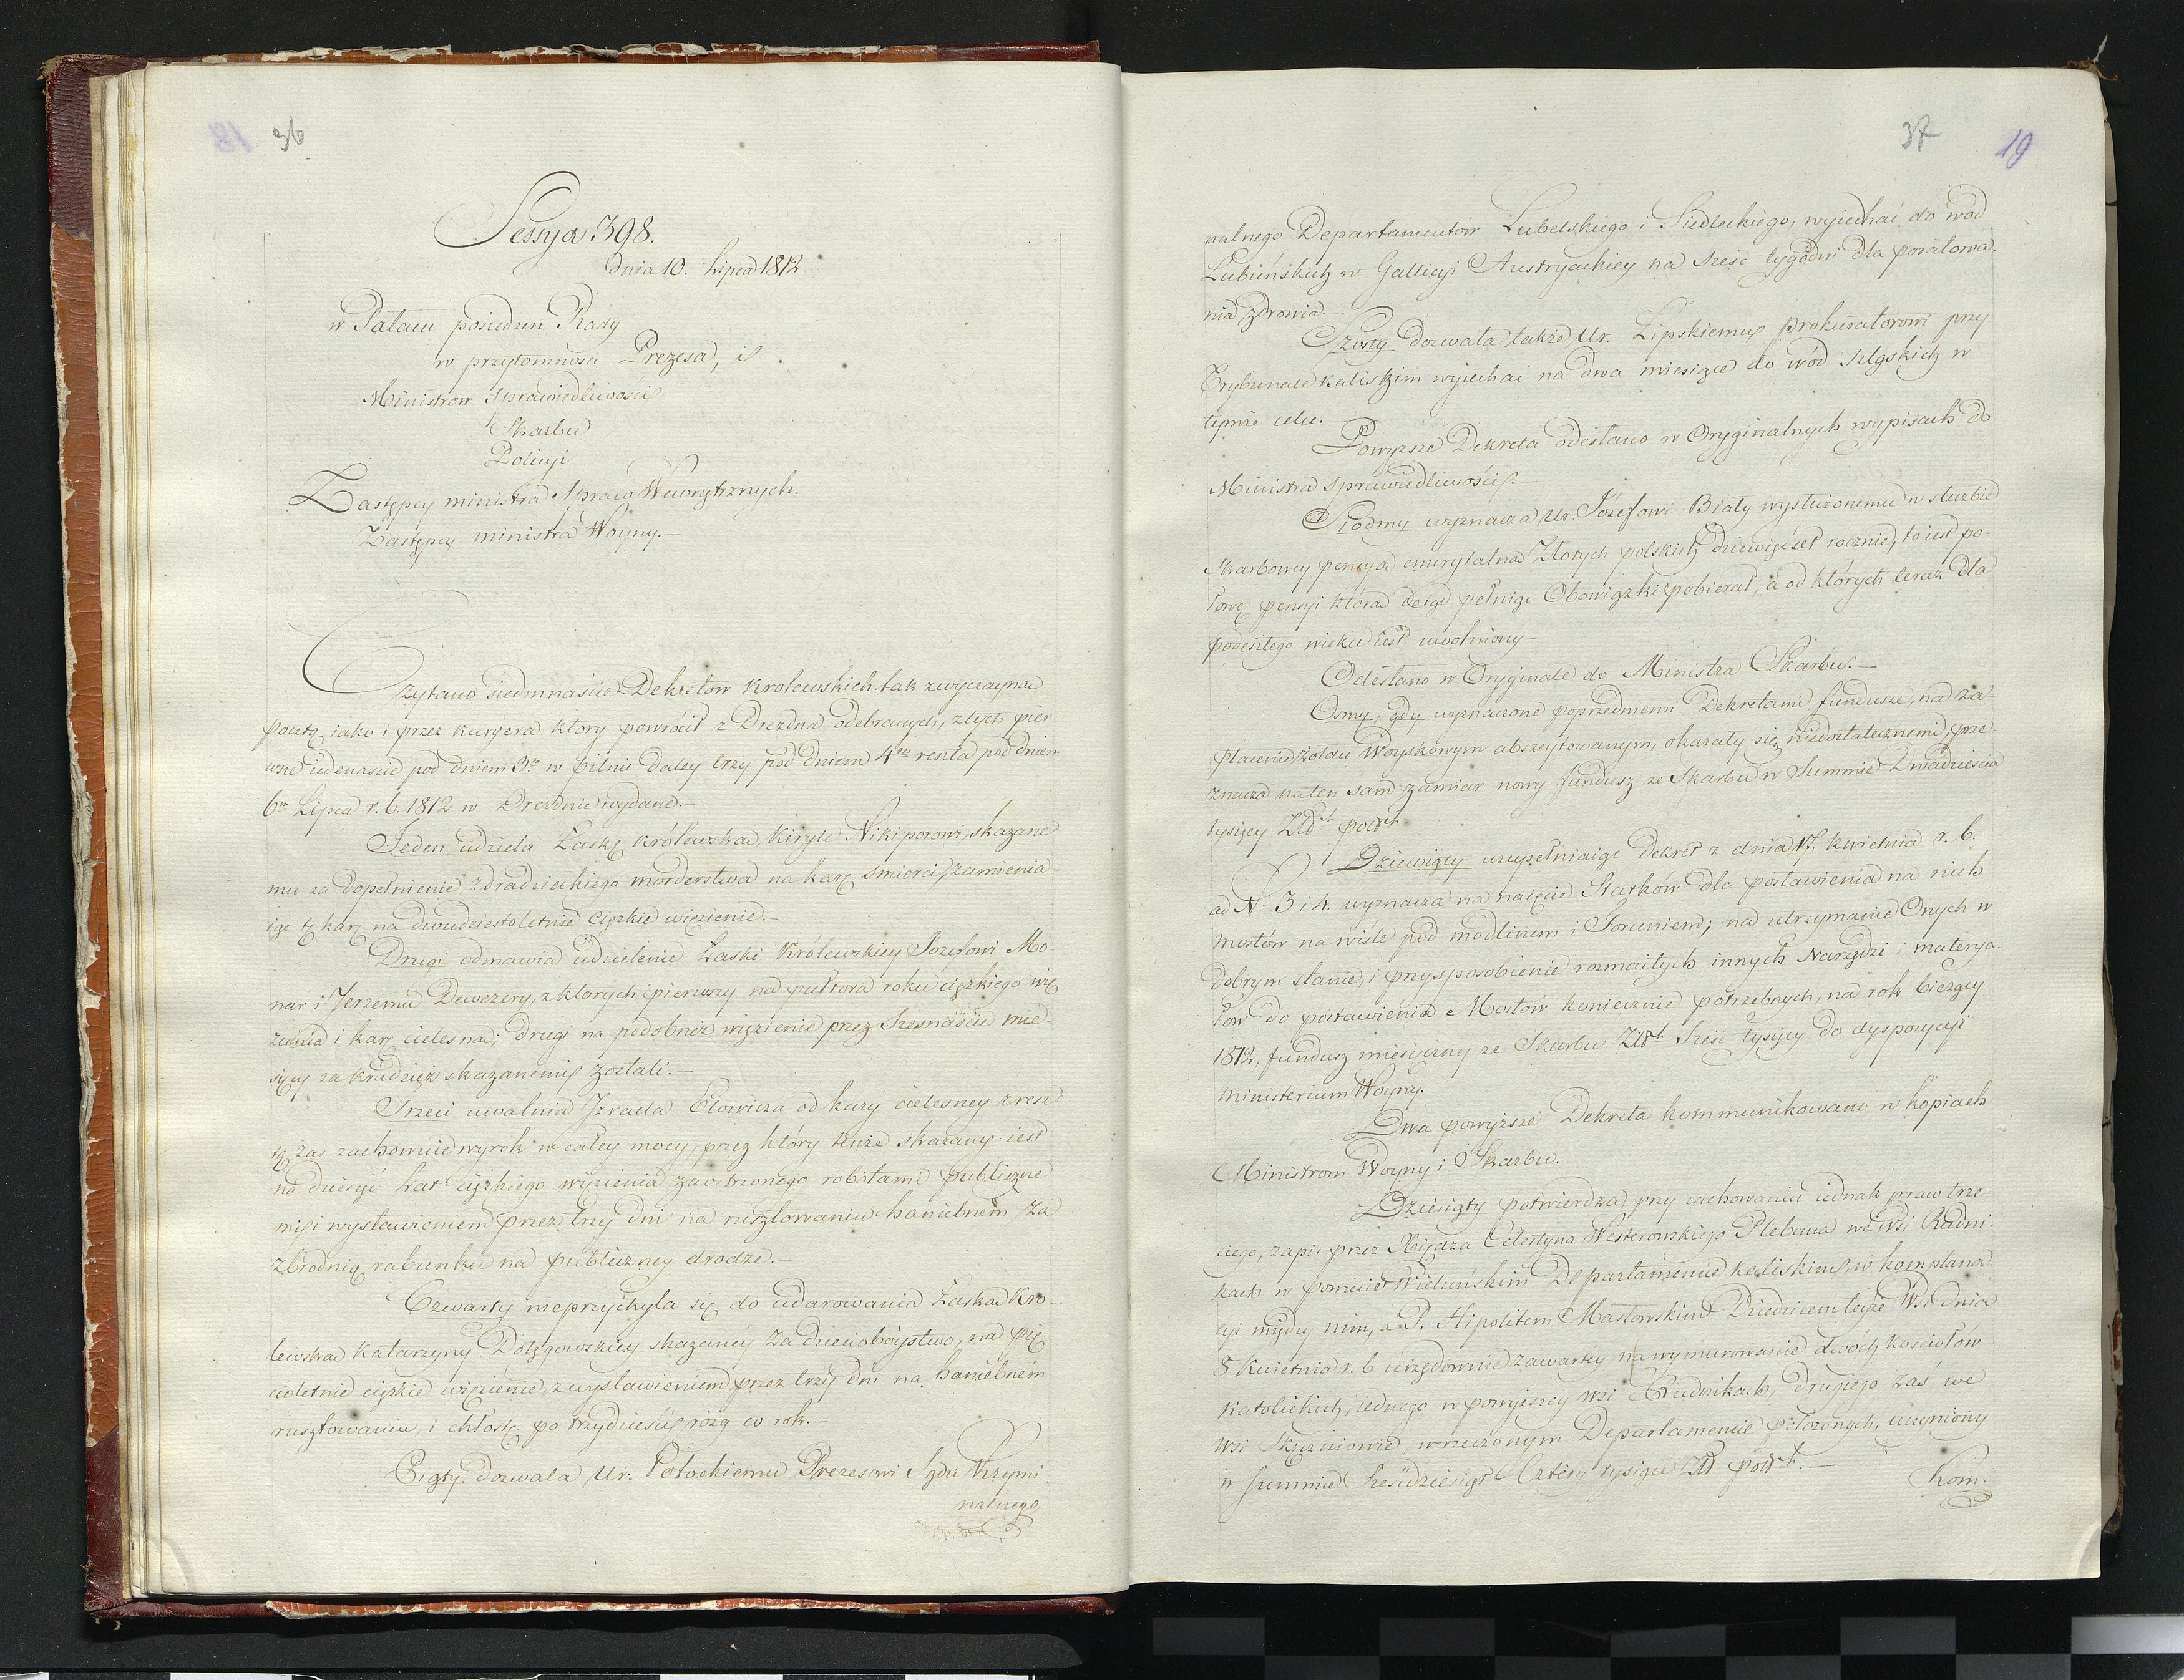 36
Sessya 398.
dnia 10. Lipca 1812
w Pałacu posiedzen Rady
w przytomnosci Prezesa, i
Ministrow Sprawiedliwości
Skarbu
Policyi
Zastępcy ministra Spraw Wewnętrznych.
Zastępcy ministra Woyny.—
Czytano siedmnaście Dekretow Krolewskich tak zwyczayną
pocztą iako i przez kuryera ktory powrócił z Drezdna odebranych, z tych pier
wsze iedenascie pod dniem 3m w Pilnie daley trzy pod dniem 4m reszta pod dniem
6m Lipca r. b. 1812 w Dreznie wydane.—
Jeden udziela Łaskę królewską Kiryle Nikiporowi, skazane
mu za dopełnienie zdradzieckiego morderstwa na karę smierci, zamienia
iąc tę karę na dwudziestoletnie Cięzkie więzienie.—
Drugi odmawia udzielenie Łaski Krolewskiey Jozefowi Mo-
nar i Jerzemu Dewezery, z ktorych pierwszy na pułtora roku cięzkiego wię
zienia i karę cielesną; drugi na podobnez więzienie przez Szesnaście mie-
sięcy za kradzież skazanemi zostali.—
Trzeci uwalnia Izraela Elowicza od kary cielesney z resz
tą zas zachowuie wyrok w całey mocy, przez który tenże skazany iest
na dziesięć Lat cięzkiego więzienia zaostrzonego robotami publiczne
mi i wystawieniem przez trzy dni na rusztowaniu haniebnem za
zbrodnię rabunku na publiczney drodze.—
Czwarty nieprzychyla się do udarowania Łaską Kro-
lewską Katarzyny Dołęgowskiey skazaney za dzieciobóystwo, na pię
cioletnie cięzkie więzienie, z wystawieniem przez trzy dni na haniebném
rusztowaniu, i chłostę po trzydzieści rózg co rok.—
Piąty. dozwala Ur. Potockiemu Prezesowi Sądu Krymi
nalnego
37
19
nalnego Departamentów Lubelskiego i Siedleckiego, wyiechać do wod
Lubieńskich w Gallicyi Austryackiey na sześć tygodni dla poratowa-
nia zdrowia.—
Szosty dozwala także Ur. Lipskiemu prokuratorowi przy
Trybunale Kaliskim wyiechać na dwa miesiące do wód Szląskich w
tymże celu.—
Powyższe Dekreta odesłano w Oryginalnych wypisach do
Ministra Sprawiedliwości.—
Siodmy wyznacza Ur. Józefowi Biały wysłużonemu w służbie
Skarbowey pensyą emerytalną Złotych polskich dziewięćset rocznie, to iest po-
łowę pensyi ktorą dotąd pełniąc Obowiązki pobierał, a od których teraz dla
podeszłego wieku iest uwolniony—
Odesłano w Oryginale do Ministra Skarbu.—
Osmy, gdy wyznaczone poprzedniemi Dekretami fundusze, na za-
płacenie żołdu Woyskowym abszeytowanym, okazały się niedostatecznemi, prze-
znacza na ten sam zamiar nowy fundusz ze Skarbu w Summie Dwadzieścia
tysięcy Złtch polch
Dziewiąty uzupełniaiąc Dekret z dnia 17. kwietnia r. b.
ad No 3 i 4. wyznacza na naięcie Statków dla postawienia na nich
mostów na wisle pod modlinem i Toruniem; na utrzymanie Onych w
dobrym stanie, i przysposobienie rozmaitych innych Narzędzi i materya-
łow do postawienia Mostów koniecznie potrzebnych, na rok bieżący
1812, fundusz miesięczny ze Skarbu Złch Sześć tysięcy do dyspozycyi
Ministerium Woyny.
Dwa powyższe Dekreta kommunikowano w kopiach
Ministrom Woyny i Skarbu.
Dziesiąty potwierdza, przy zachowaniu iednak praw trze-
ciego, zapis przez Xiędza Celestyna Westerowskiego Plebana we Wsi Rudni-
kach w powiecie Wieluńskim Departamencie Kaliskim, w komplana-
cyi między nim, a P. Hipolitem Masłowskim Dziedzicem teyże Wsi dnia
8 Kwietnia r. b urzędownie zawartey na wymurowanie dwóch kosciołów
Katolickich, iednego w powyższey wsi Rudnikach, drugiego zaś we
wsi Skęczniowie, w rzeczonym Departamencie położonych, uczyniony
w summie Sześćdziesiąt Cztery tysiące Złł polch.—
Kom.